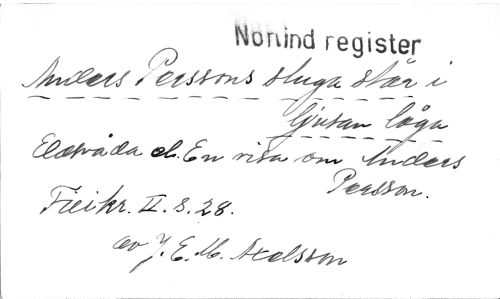 Nonind register
Anders Perssons stuga står i
ljusan låga
Eldsvåda el. En visa om Anders
Persson.
II. s. 28.
av J. E. M. Axelsson